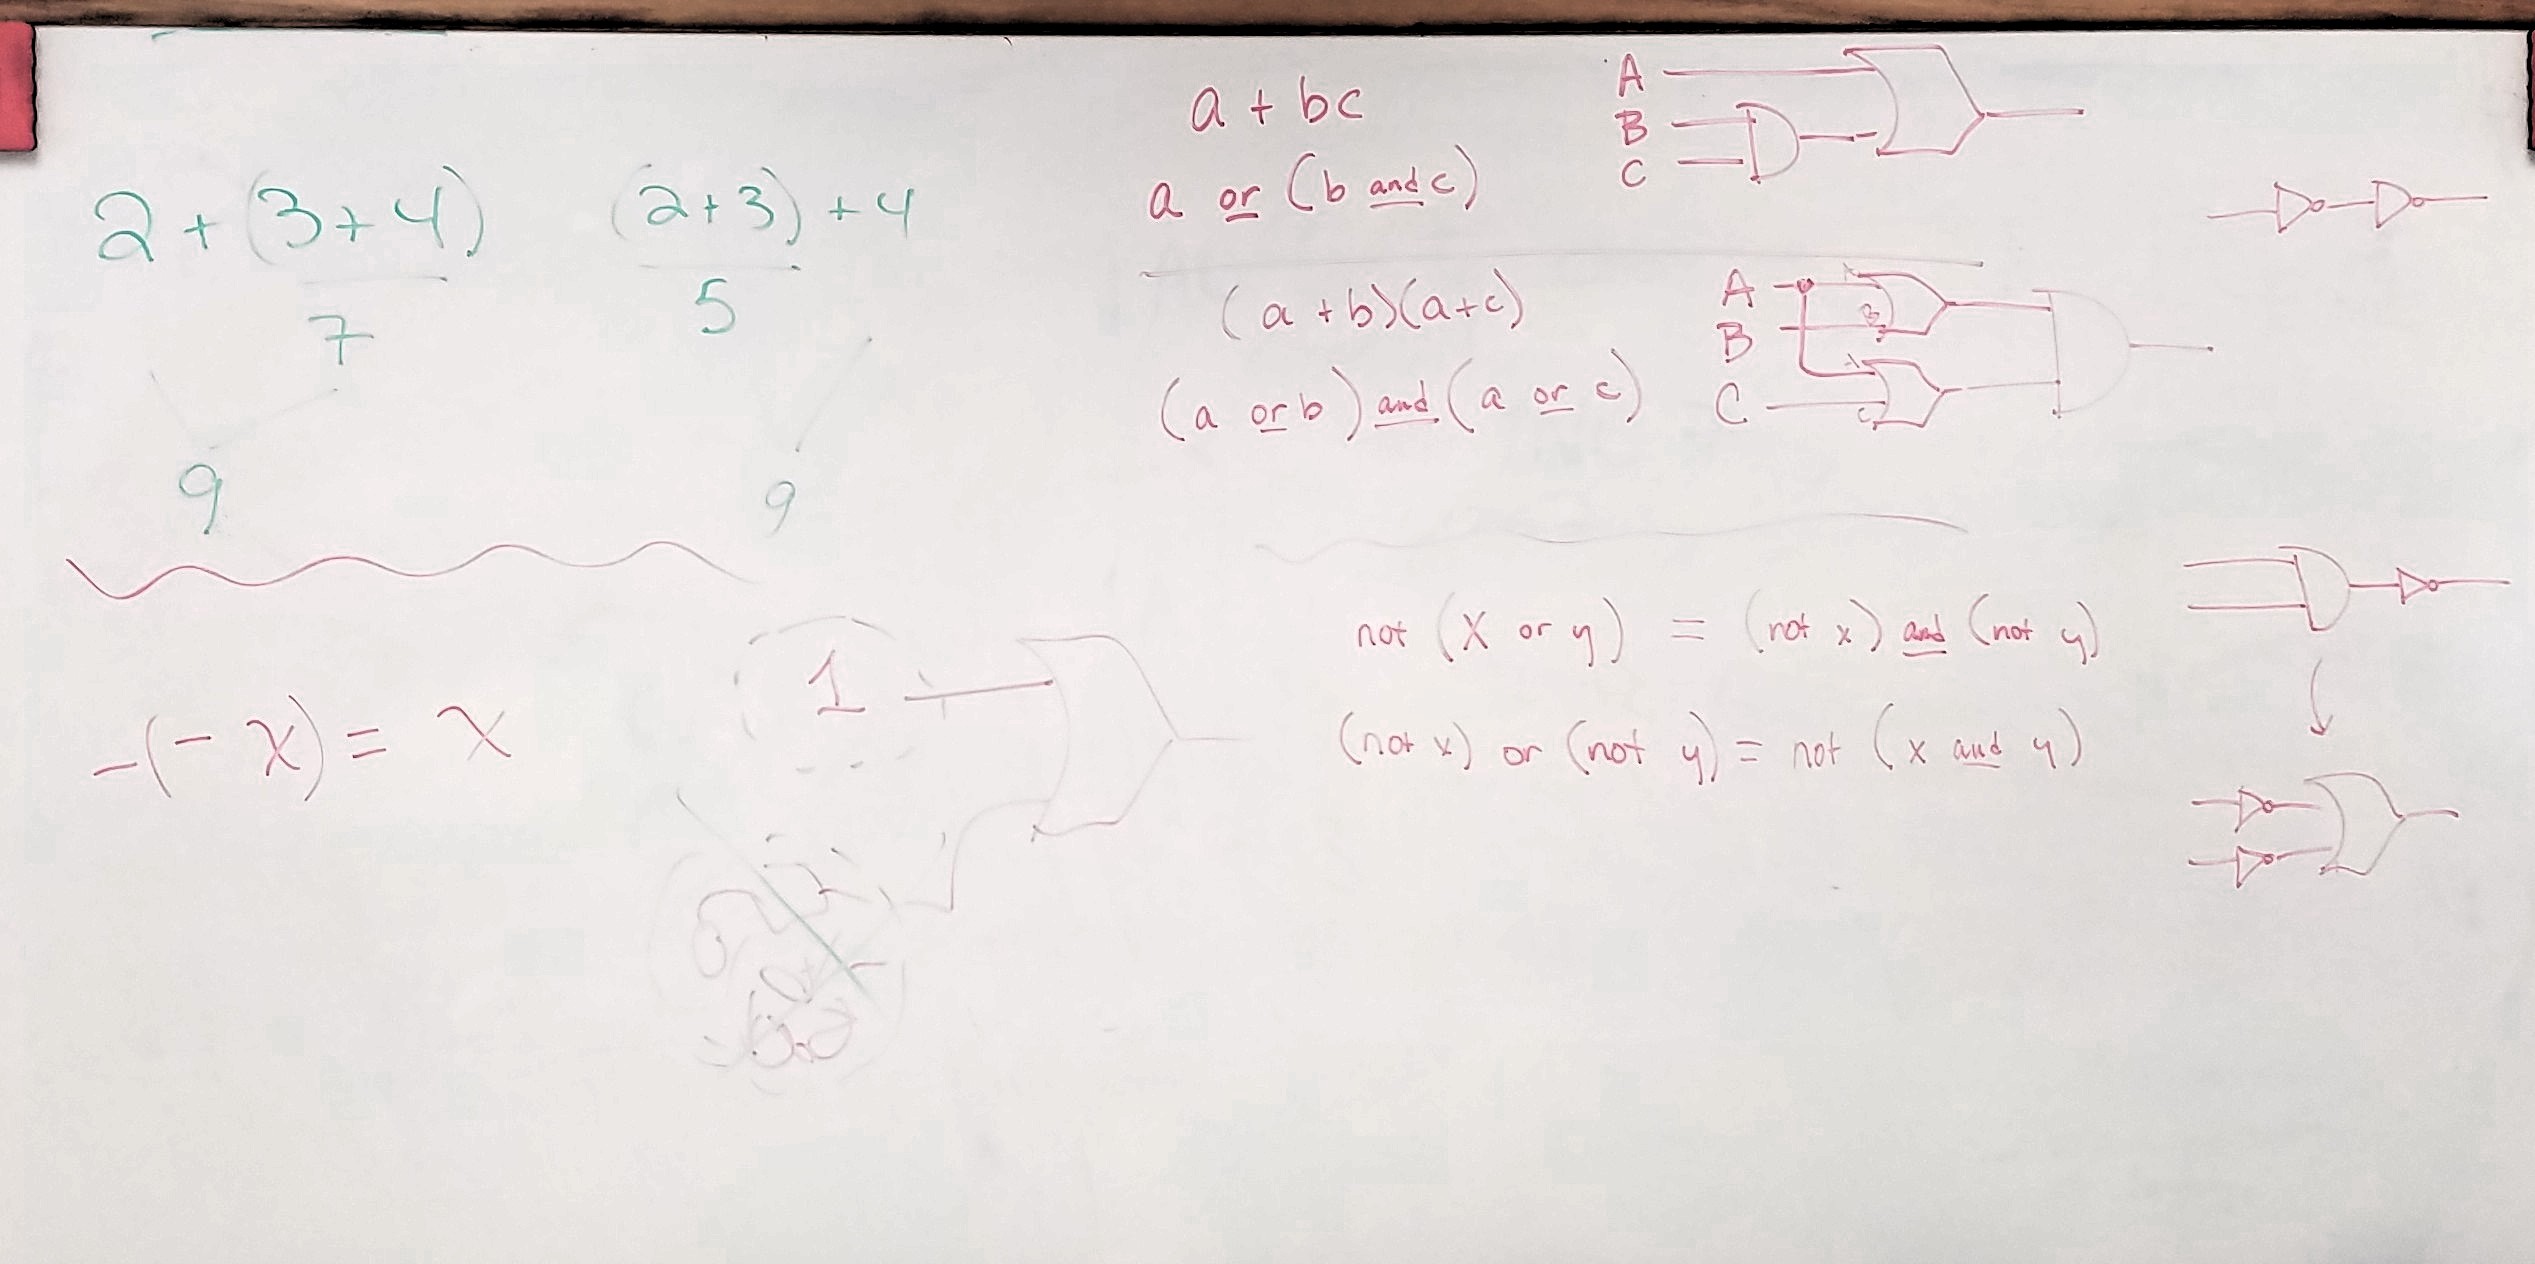 2 + (3 + 4)
7
9
(2+3) + 4
5
9
-(- x) = x
1
a + bc
a or (b and c)
A
B
C
(a + b)(a+c)
(a or b) and (a or c)
A
B
C
A
B
A
C
not (x or y) = (not x) and (not y)
(not x) or (not y) = not (x and y)